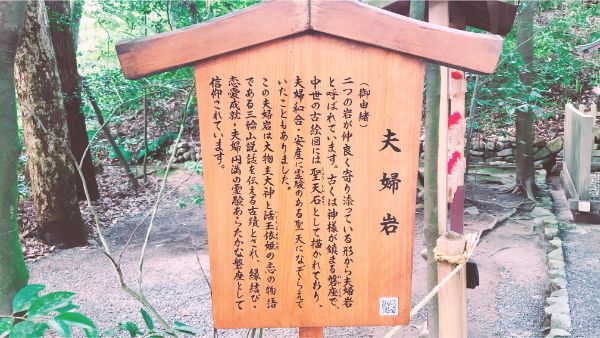 夫婦岩
（御由緒）
二つの岩が仲良く寄り添っている形から夫婦岩
と呼ばれています。古くは神様が鎮まる磐座で、
中世の古絵図には聖天石として描かれており、
夫婦和合・安産に霊験のある聖天になぞらえて
いたこともありました。
この夫婦岩は大物主大神と活玉依姫の恋の物語
である三輪山説話を伝える古蹟とされ、縁結び・
恋愛成就・夫婦円満の霊験あらたかな磐座として
信仰されています。